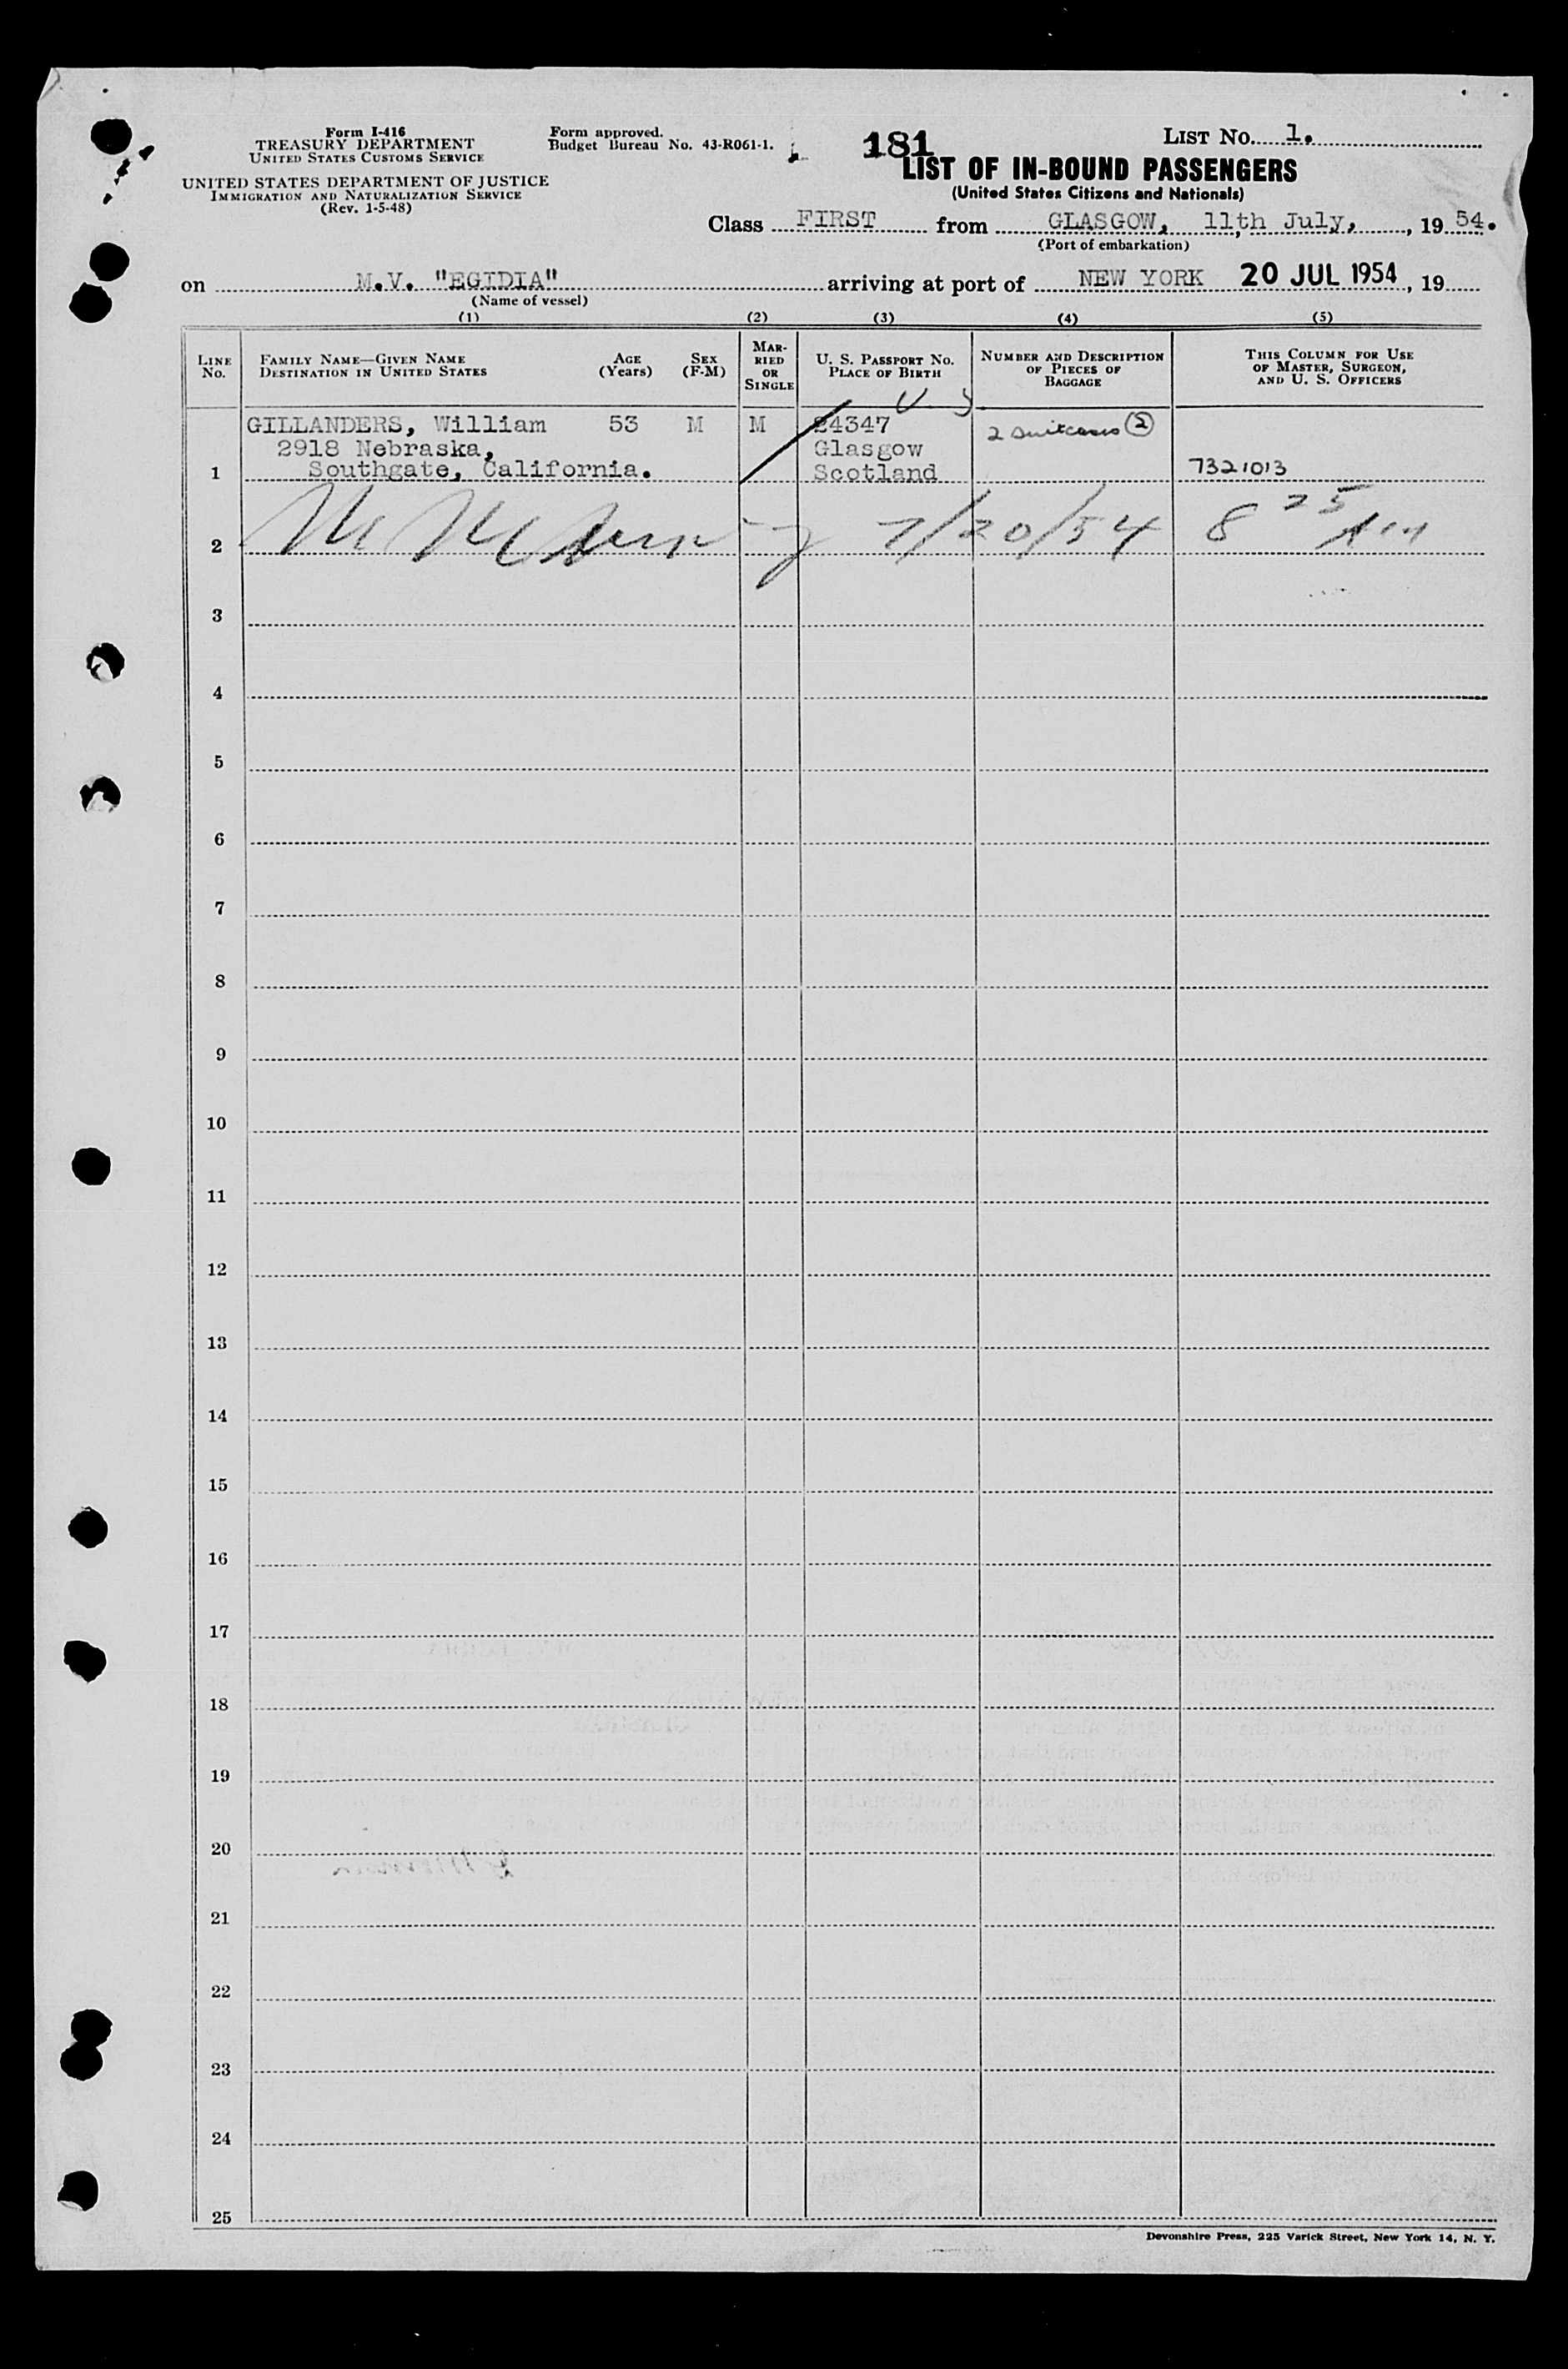 Form I-416
TREASURY DEPARTMENT
UNITED STATES CUSTOMS SERVICE
UNITED STATES DEPARTMENT OF JUSTICE
IMMIGRATION AND NATURALIZATION SERVICE
(Rev. 1-5-48)
Form approved.
Budget Bureau No. 43-R061-1.
181
LIST No. 1.
LIST OF IN-BOUND PASSENGERS
(United States Citizens and Nationals)
Class FIRST from GLASGOW, 11th July, , 19 54.
(Port of embarkation)
on M.V. "EGIDIA" arriving at port of NEW YORK 20 JUL 1954, 19
(Name of vessel)
(1) (2) (3) (4) (5)
LINE No.
FAMILY NAME—GIVEN NAME
DESTINATION IN UNITED STATES
AGE (Years)
SEX (F-M)
MARRIED OR SINGLE
U. S. PASSPORT No.
PLACE OF BIRTH
NUMBER AND DESCRIPTION OF PIECES OF BAGGAGE
THIS COLUMN FOR USE OF MASTER, SURGEON, AND U. S. OFFICERS
U S
GILLANDERS, William 53 M M 24347 2 suitcases (2)
2918 Nebraska, Glasgow
1 Southgate, California. Scotland 7321013
2 7/20/54 8 25 Am
3
4
5
6
7
8
9
10
11
12
13
14
15
16
17
18
19
20
21
22
23
24
25
Devonshire Press, 225 Varick Street, New York 14, N. Y.